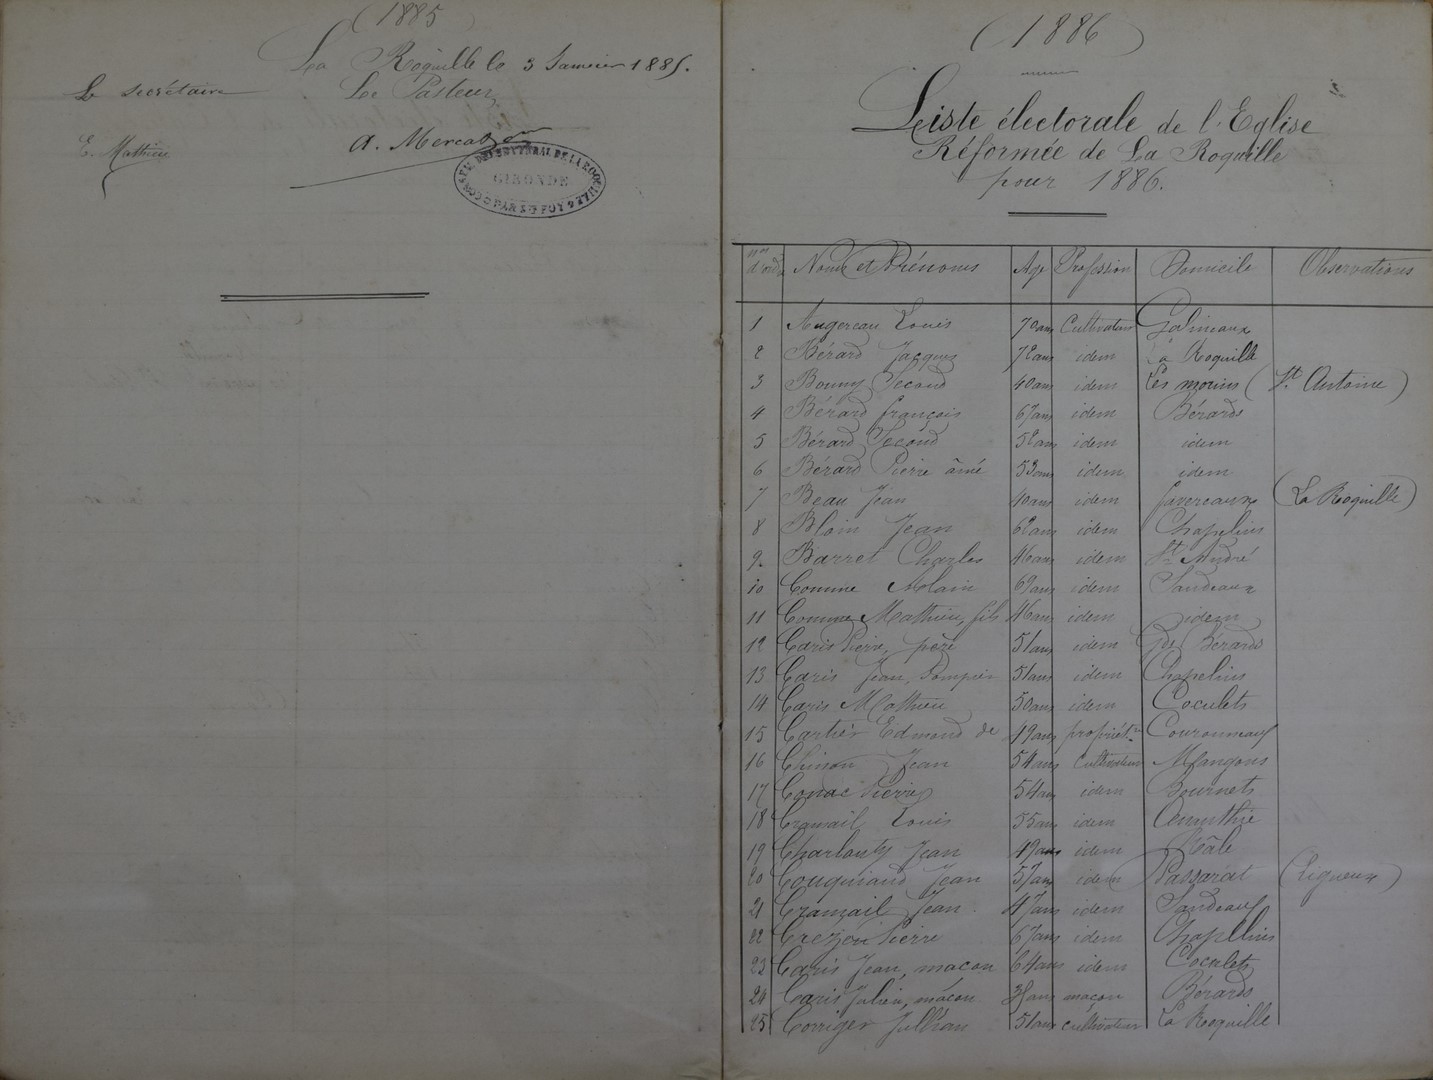 (1885)
La Roquille le 3 Janvier 1885.
Le secrétaire Le Pasteur
E. Mathieu A. Mercat
GIRONDE
(1886)
Liste électorale de l'Eglise
Réformée de La Roquille
pour 1886.
Nos d'ord. Noms et Prénoms Age Profession Domicile Observations
1 Augereau Louis 70 ans Cultivateur Galineaux
2 Bérard Jacques 72 ans idem La Roquille
3 Bonny Second 40 ans idem Les mourins (St Antoine)
4 Bérard françois 67 ans idem Bérards
5 Bérard Second 52 ans idem idem
6 Bérard Pierre âiné 53 ans idem idem
7 Beau Jean 40 ans idem favereaux (La Roquille)
8 Bloin Jean 62 ans idem Chapelins
9 Barret Charles 46 ans idem St André
10 Comme Alain 69 ans idem Sandeaux
11 Comme Mathieu, fils 46 ans idem idem
12 Caris Pierre, père 51 ans idem Gds Bérards
13 Caris Jean, Pompier 51 ans idem Chapelins
14 Caris Mathieu 50 ans idem Coculets
15 Cartier Edmond de 49 ans propriétre Couronneau
16 Chinon Jean 54 ans Cultivateur Mangons
17 Conac Pierre 54 ans idem Bournets
18 Cramail Louis 55 ans idem
19 Charlouty Jean 49 ans idem
20 Couquiaud Jean 57 ans idem Passarat (Ligueux)
21 Cramail Jean 47 ans idem Sandeaux
22 Crezen Pierre 67 ans idem Chapellins
23 Caris Jean, macon 64 ans idem Coculets
24 Caris Julien, mácon 38 ans maçon Bérards
25 Corriger Jullian 51 ans cultivateur La Roquille